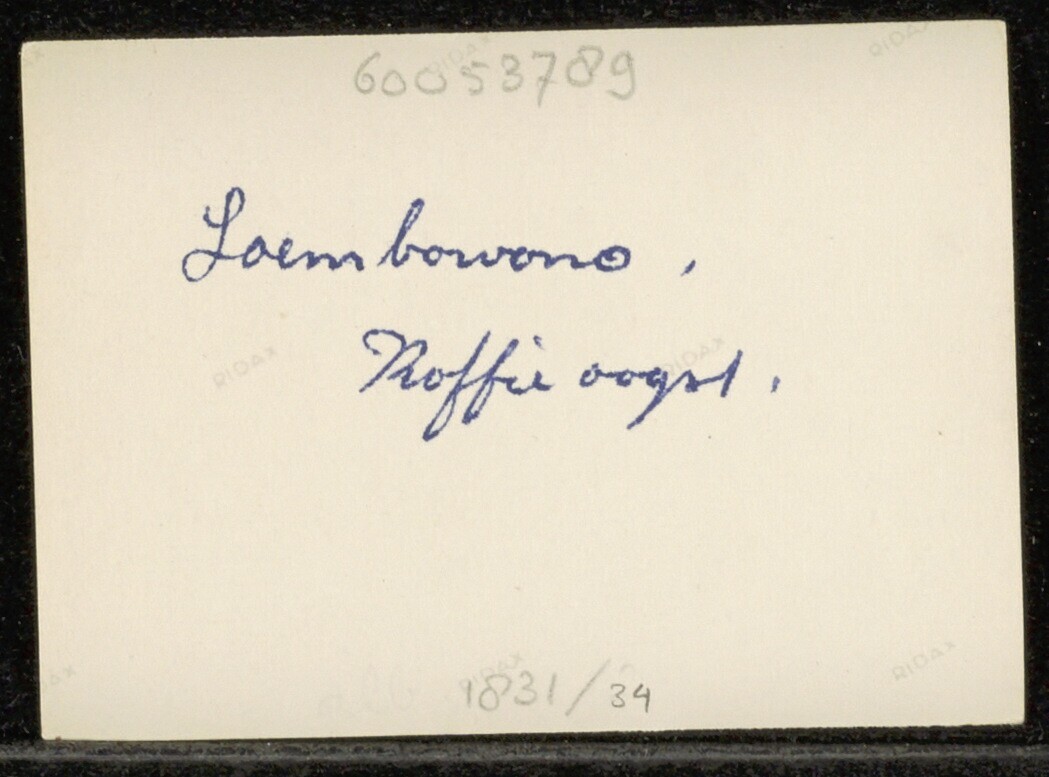 60053789
Soembowono,
Koffie oogst.
1831/34
RIDAX